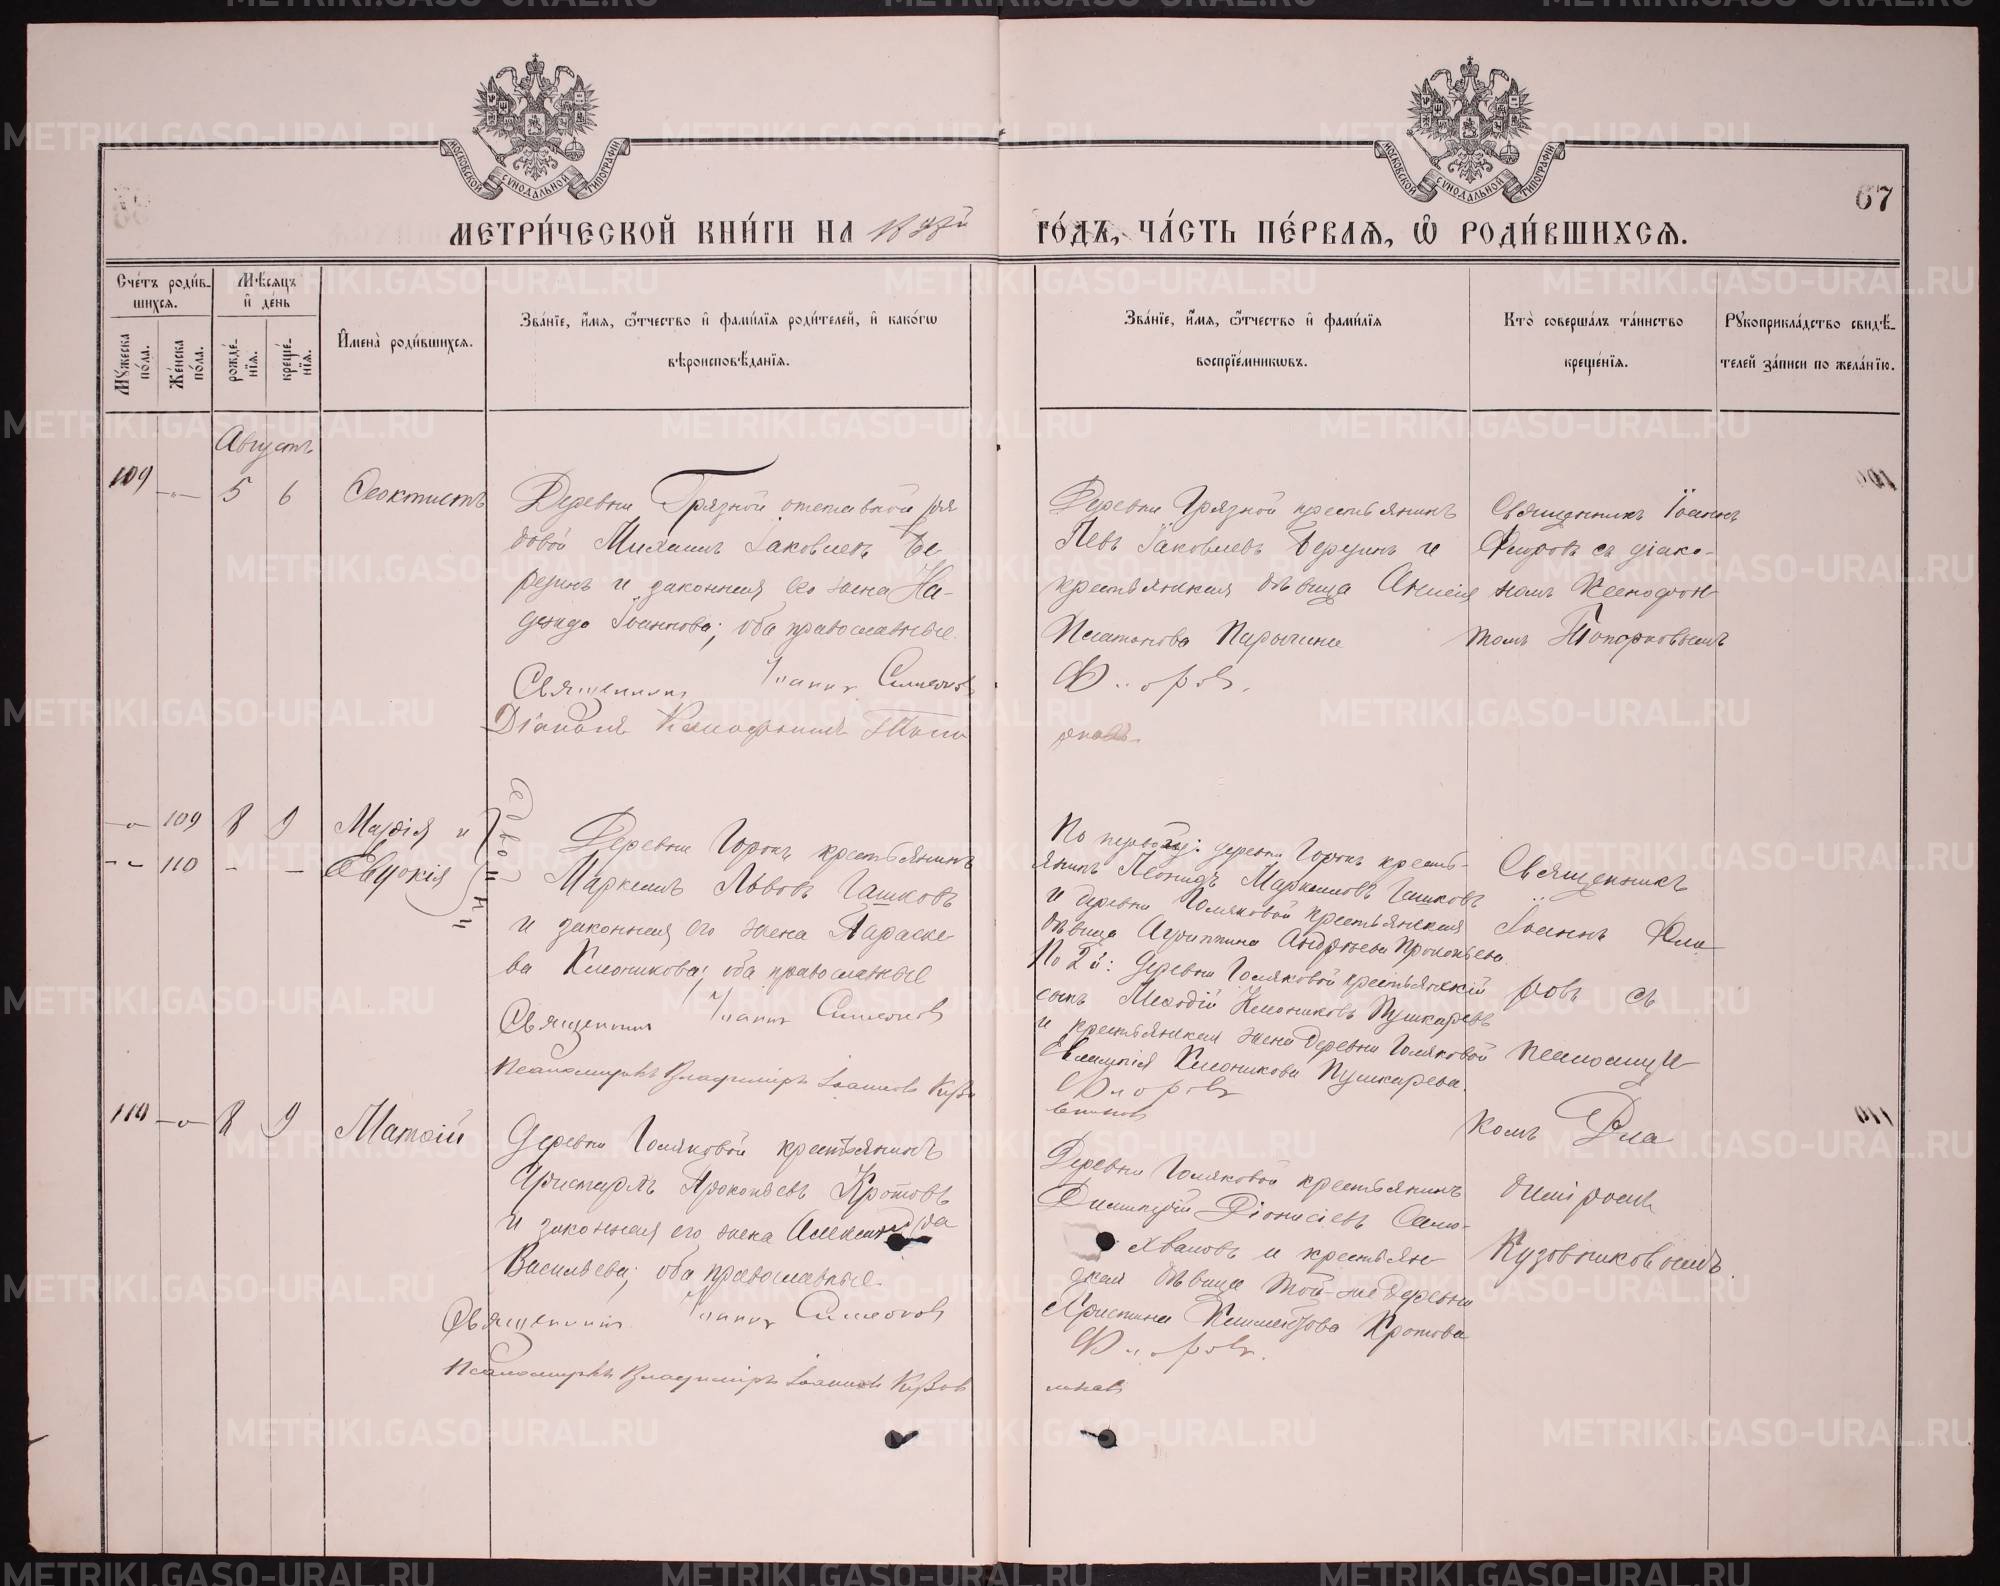 МОСКОВСКОЙ СѴНОДАЛЬНОЙ ТИПОГРАФІИ
МОСКОВСКОЙ СѴНОДАЛЬНОЙ ТИПОГРАФІИ
67
МЕТРИ́ЧЕСКОЙ КНИ́ГИ НА
ГО́ДЪ, ЧА́СТЬ ПЕ́РВАѦ, Ѽ РОДИ́ВШИХСѦ.
Сче́тъ роди́в-
шихсѧ.
Мꙋ́жеска по́ла.
Же́нска по́ла.
Мѣ́сѧцъ
и҆ де́нь
рожде́-
нїѧ.
креще́-
нїѧ.
И҆мена̀ роди́вшихсѧ.
Зва́нїе, и҆́мѧ, ѻ҆́тчество и҆ фами́лїѧ роди́телей, и҆ како́гѡ
вѣроисповѣ́данїѧ.
Зва́нїе, и҆́мѧ, ѻ҆́тчество и҆ фами́лїѧ
воспрїе́мникѡвъ.
Кто̀ соверша́лъ та́инство
креще́нїѧ.
Рꙋкоприкла́дство свидѣ́-
телей за́писи по жела́нїю.
Августъ
109 5 6 Ѳеоктистъ
Деревни Грязной отставной ря
довой Михаилъ Іаковлевъ Бе
резинъ и законная его жена На-
дежда Іоаннова; оба православные
Священникъ Іоаннъ Симеоновъ
Діаконъ Ксенофонтъ Топо
Деревни Грязной крестьянинъ
Левъ Іаковлевъ Березинъ и
крестьянская дѣвица Анисія
Платонова
Флоровъ.
Священникъ Іоаннъ
Флоровъ съ діако-
номъ Ксенофон
томъ Топорковымъ
109 8 9 Марія и
110 - - Евдокія
близнецы
Деревни Горокъ крестьянинъ
Маркеллъ Львовъ Гашковъ
и законная его жена Параске
ва Клюникова; оба православные
Священникъ Іоаннъ Симеоновъ
Псаломщикъ Владиміръ Іоанновъ Кузо
По первой: деревни Горокъ кресть-
янинъ Леонидъ Маркелловъ Гашковъ
и деревни Голяковой крестьянская
дѣвица Агриппина Андреева Прокопьева
По 2й: деревни Голяковой крестьянскій
сынъ Меѳодій Клюниковъ Пушкаревъ
и крестьянская жена деревни Голяковой
Евлампія Клюникова Пушкарева.
Флоровъ
Священникъ
Іоаннъ Фло
ровъ съ
псаломщи
комъ Вла
диміромъ
Кузовниковымъ
110 8 9 Матѳій
Деревни Голяковой крестьянинъ
Аристархъ Прокопьевъ Кротовъ
и законная его жена Александра
Васильева; оба православные.
Священникъ Іоаннъ Симеоновъ
Псаломщикъ Владиміръ Іоанновъ Кузов
Деревни Голяковой крестьянинъ
Димитрій Діонисіевъ Само-
хваловъ и крестьян
ская дѣвица той-же деревни
Христина Климентова Кротова
Флоровъ.
никовъ